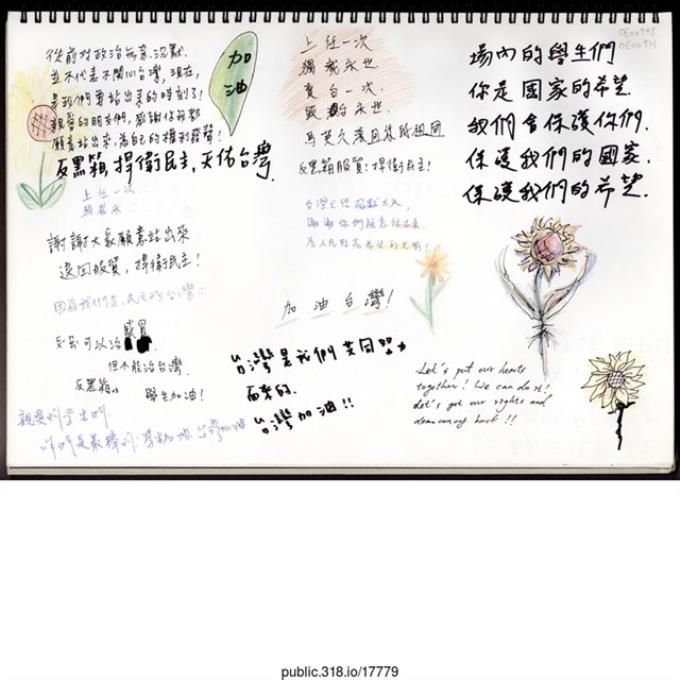 從前對政治無感、沉默
並不代表不關心台灣,現在,
是我們要站出來的時刻了!
親愛的朋友們,感謝你們都
願意站出來,為自己的權利發聲!
反黑箱,捍衛民主,天佑台灣.
加油
上任一次
謝謝大家願意站出來
退回服貿,捍衛民主!
因為我們是民主的台灣
感冒
可以治
但不能治台灣.
反黑箱
學生加油!
親愛的學生們
咱們是最棒的
台灣加油
上任一次
獨裁永世
賣台一次
毀台永世
馬英九滾回後的祖國
反黑箱服貿!捍衛民主!
台灣已經沉默太久,
謝謝你們願意站出來,
為人民點亮希望的光明!
加油台灣!
台灣是我們共同努力
而來的.
台灣加油!!
OE00948
OE00921
場內的學生們
你是國家的希望.
我們會保護你們.
保護我們的國家.
保護我們的希望.
Let's put our hearts
together! We can do it!
Let's get our rights and
democracy back!!
public.318.io/17779